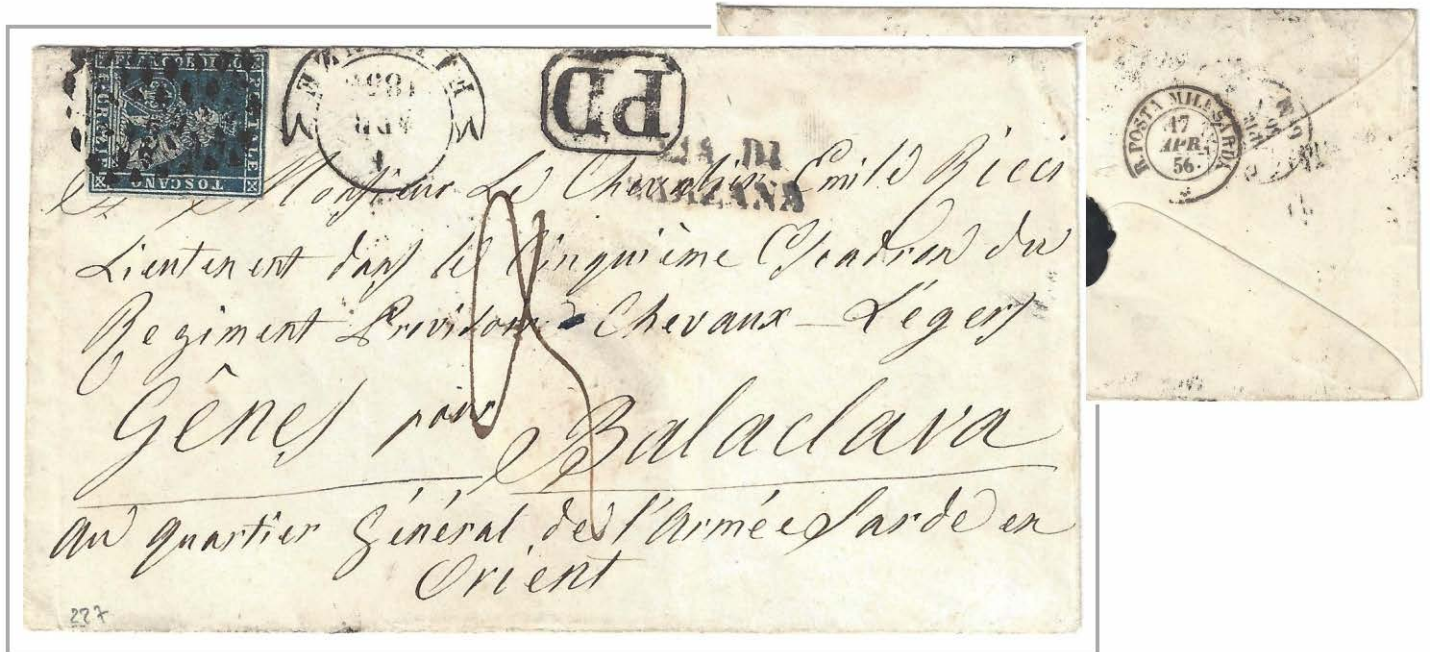 FRANCOBOLLO POSTALE
TOSCANO
FIRENZE
1
APR
1856
PD
VIA DI
SARZANA
A Monsieur Le Chevalier Emile Ricci
Lieutenent dans le Cinquième Escadron du
Regiment Provisoire Chevaux - Légers
Gênes pour Balaclava
au quartier Général de l'Armée Sarde en
Orient
227
R. POSTA MILE SARDA
17
APR
56